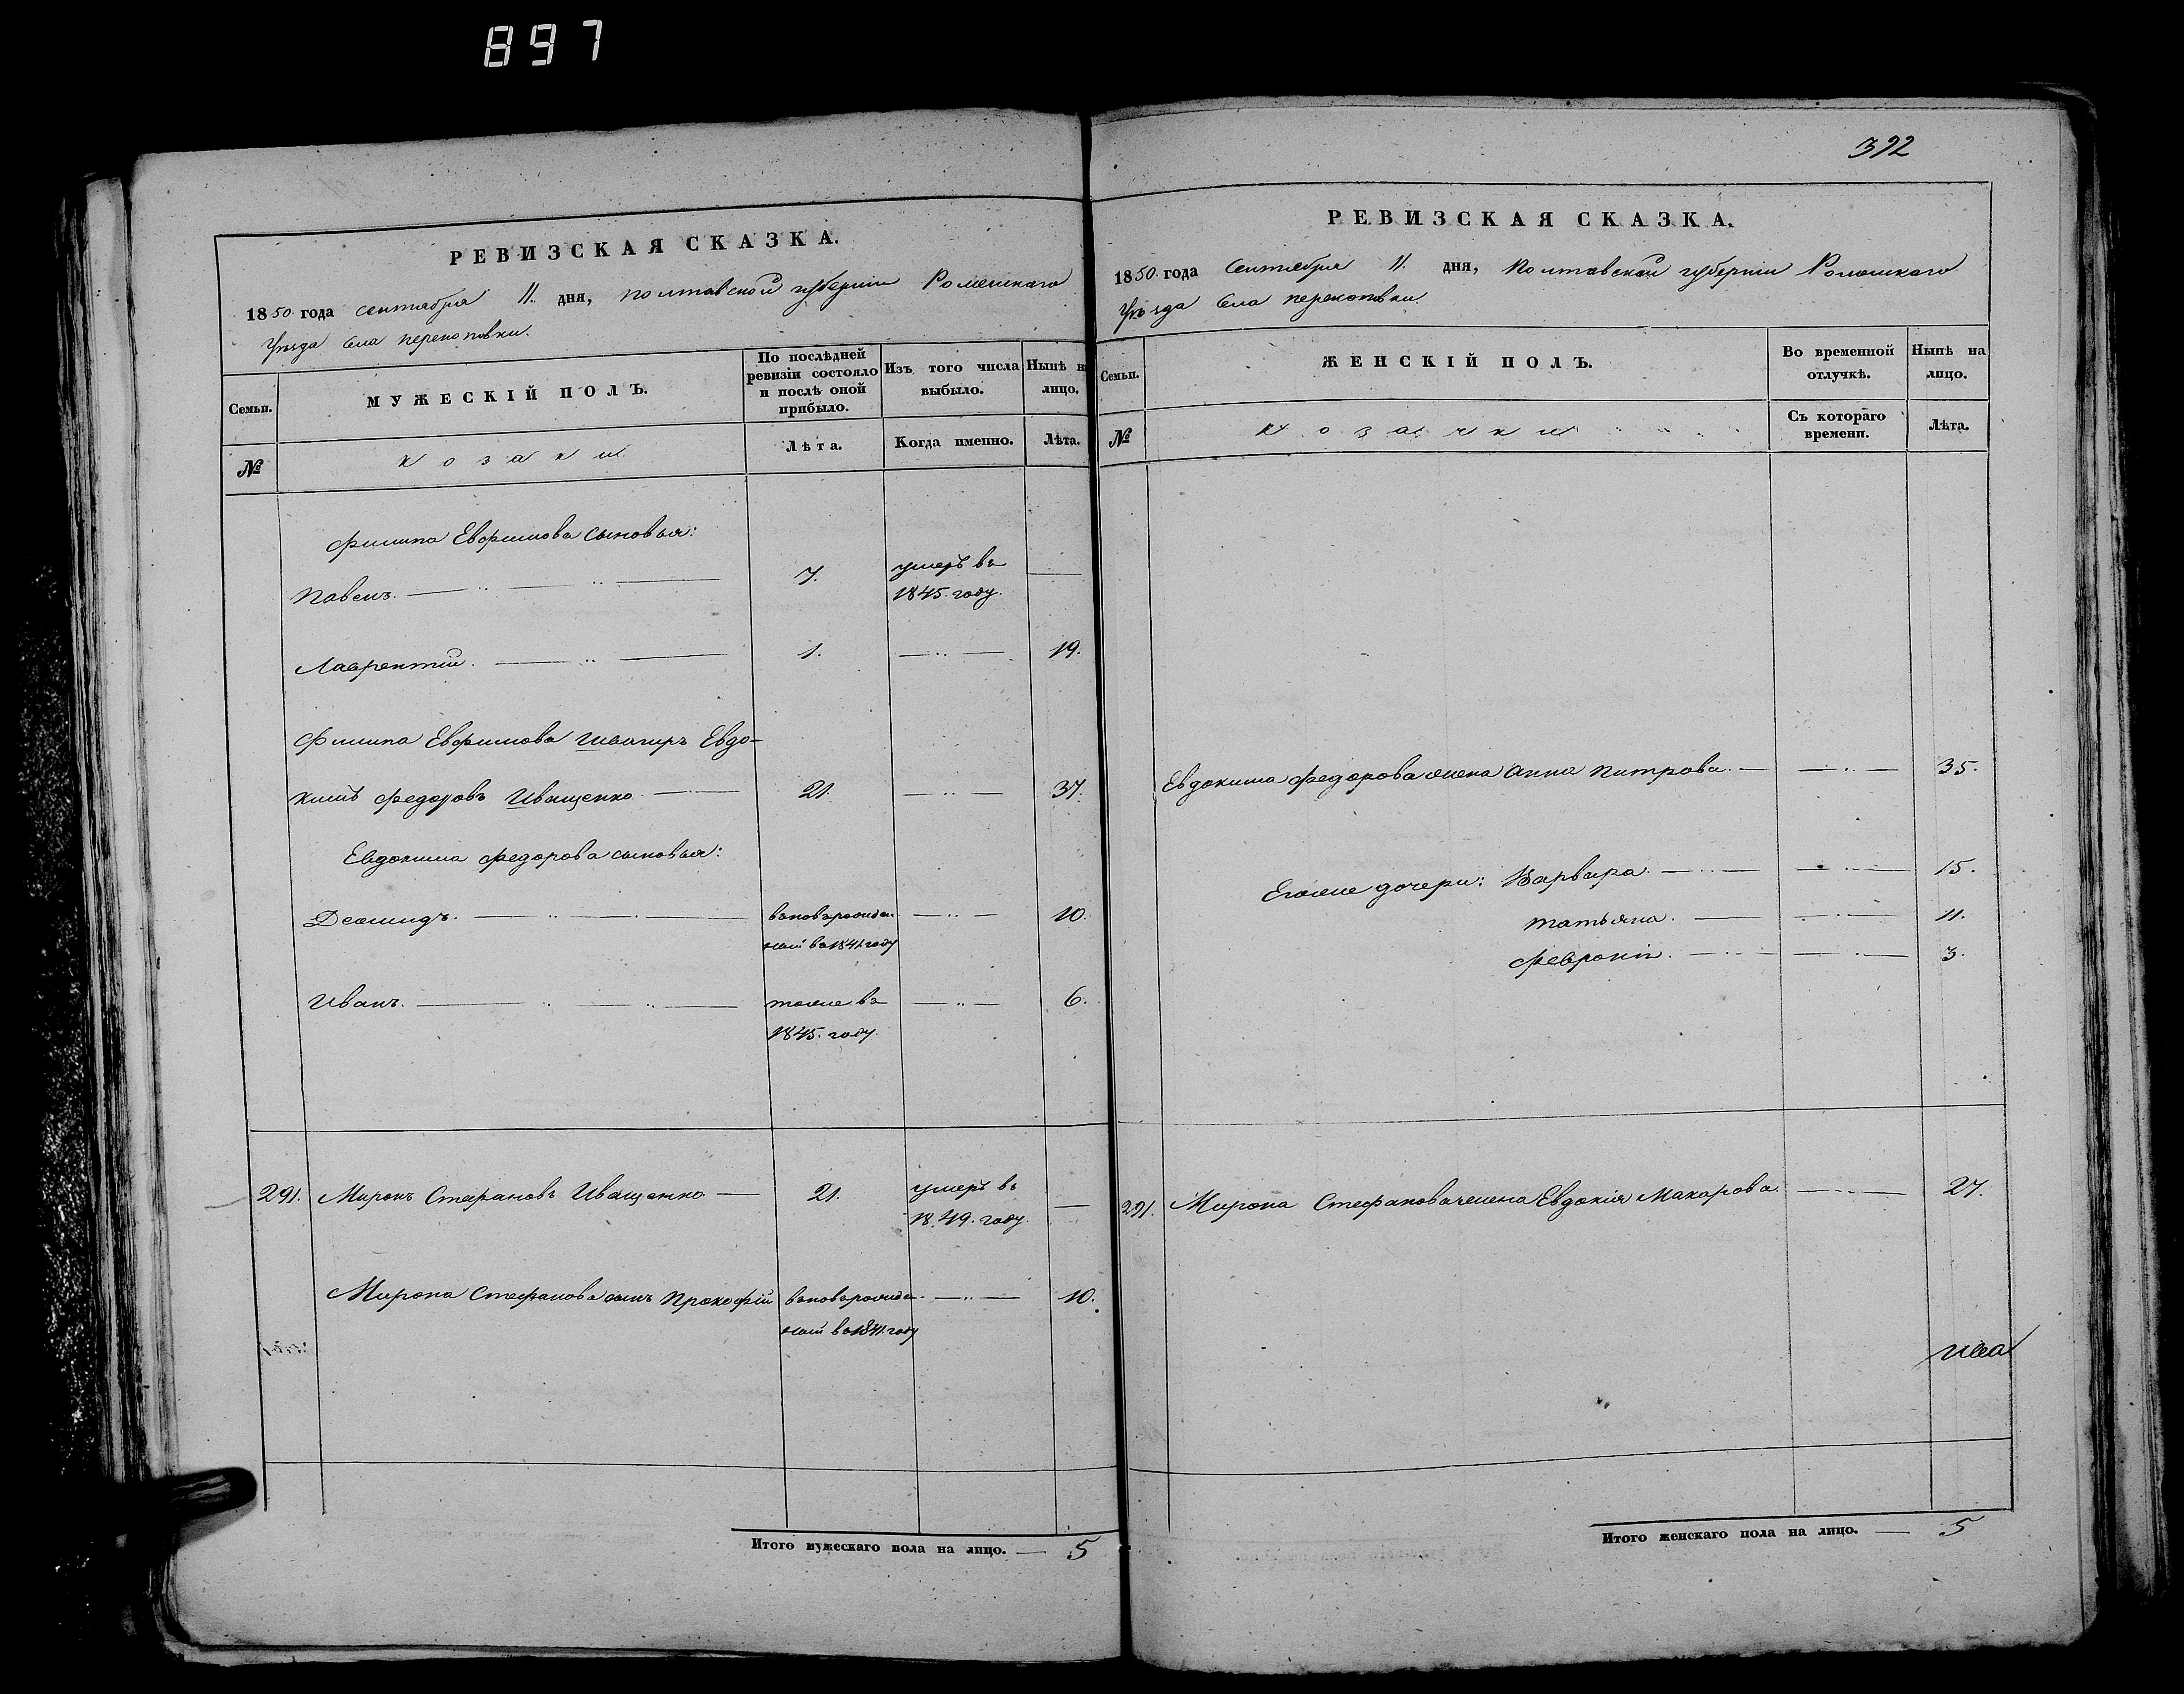 897
РЕВИЗСКАЯ СКАЗКА.
1850 года сентября 11. дня, Полтавской губернiи Роменскаго
Уѣзда Села Перекоповки.
Семьи.
МУЖЕСКІЙ ПОЛЪ.
По послѣдней ревизіи состояло и послѣ оной прибыло.
Изъ того числа выбыло.
Нынѣ на лицо.
№
козаки
Лѣта.
Когда именно.
Лѣта.
Филипа Евфимова сыновья:
Павелъ. 7. умеръ въ
1845. году.
Лаврентій. 1. 19.
Филипа Евфимова Швагиръ Евдо-
кимъ Федоровъ Иващенко 21. 37.
Евдокима Федорова сыновья:
Деомидъ. вновьрожде- 10.
ный въ 1841 году
Иванъ. тоже въ 6.
1845. году.
291. Миронъ Стефановъ Иващенко 21. умеръ въ
1849. году.
Мирона Стефанова сынъ Прокофій вновьрожде- 10.
ный въ 1841. году
Итого мужескаго пола на лицо. 5
392
РЕВИЗСКАЯ СКАЗКА.
1850 года Сентября 11. дня, Полтавской губерніи Роменскаго
Уѣзда Села Перекоповки.
Семьи.
ЖЕНСКІЙ ПОЛЪ.
Во временной отлучкѣ.
Нынѣ на лицо.
№
козачки
Съ котораго времени.
Лѣта.
Евдокима Федорова жена Анна Петрова. 35.
Егоже дочери: Варвара. 15.
Татьяна. 11.
Февронія. 3.
291. Мирона Стефанова жена Евдокія Макарова. 27.
Итого женскаго пола на лицо. 5